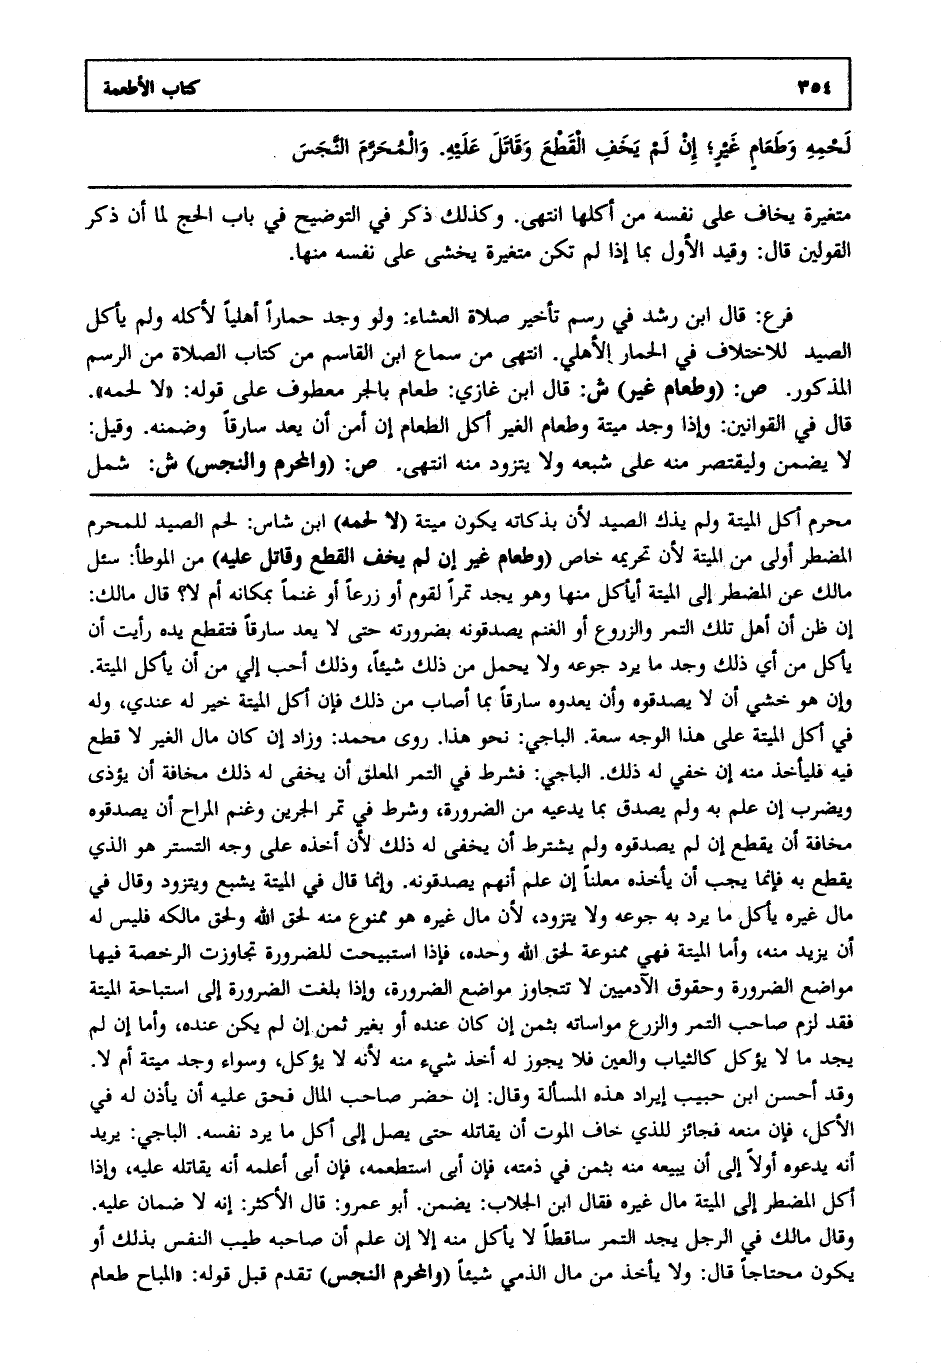 ٣٥٤
كتاب الأطعمة
لَحْمِهِ وَطَعَامِ غَيْرٍ؛ إِنْ لَمْ يَخَفِ الْقَطْعَ وَقَاتَلَ عَلَيْهِ. وَالْمُحَرَّمَ النَّجَسَ
متغيرة يخاف على نفسه من أكلها انتهى. وكذلك ذكر في التوضيح في باب الحج لما أن ذكر
القولين قال: وقيد الأول بما إذا لم تكن متغيرة يخشى على نفسه منها.
فرع: قال ابن رشد في رسم تأخير صلاة العشاء: ولو وجد حماراً أهلياً لأكله ولم يأكل
الصيد للاختلاف في الحمار الأهلي. انتهى من سماع ابن القاسم من كتاب الصلاة من الرسم
المذكور. ص: (وطعام غير) ش: قال ابن غازي: طعام بالجر معطوف على قوله: «لا لحمه».
قال في القوانين: وإذا وجد ميتة وطعام الغير أكل الطعام إن أمن أن يعد سارقاً وضمنه. وقيل:
لا يضمن وليقتصر منه على شبعه ولا يتزود منه انتهى. ص: (والمحرم والنجس) ش: شمل
محرم أكل الميتة ولم يذك الصيد لأن بذكاته يكون ميتة (لا لحمه) ابن شاس: لحم الصيد للمحرم
المضطر أولى من الميتة لأن تحريمه خاص (وطعام غير إن لم يخف القطع وقاتل عليه) من الموطأ: سئل
مالك عن المضطر إلى الميتة أيأكل منها وهو يجد تمراً لقوم أو زرعاً أو غنماً بمكانه أم لا؟ قال مالك:
إن ظن أن أهل تلك التمر والزروع أو الغنم يصدقونه بضرورته حتى لا يعد سارقاً فتقطع يده رأيت أن
يأكل من أي ذلك وجد ما يرد جوعه ولا يحمل من ذلك شيئاً، وذلك أحب إلي من أن يأكل الميتة.
وإن هو خشي أن لا يصدقوه وأن يعدوه سارقاً بما أصاب من ذلك فإن أكل الميتة خير له عندي، وله
في أكل الميتة على هذا الوجه سعة. الباجي: نحو هذا. روى محمد: وزاد إن كان مال الغير لا قطع
فيه فليأخذ منه إن خفي له ذلك. الباجي: فشرط في التمر المعلق أن يخفى له ذلك مخافة أن يؤذى
ويضرب إن علم به ولم يصدق بما يدعيه من الضرورة، وشرط في تمر الجرين وغنم المراح أن يصدقوه
مخافة أن يقطع إن لم يصدقوه ولم يشترط أن يخفى له ذلك لأن أخذه على وجه التستر هو الذي
يقطع به فإنما يجب أن يأخذه معلناً إن علم أنهم يصدقونه. وإنما قال في الميتة يشبع ويتزود وقال في
مال غيره يأكل ما يرد به جوعه ولا يتزود، لأن مال غيره هو ممنوع منه لحق الله ولحق مالكه فليس له
أن يزيد منه، وأما الميتة فهي ممنوعة لحق الله وحده، فإذا استبيحت للضرورة تجاوزت الرخصة فيها
مواضع الضرورة وحقوق الآدميين لا تتجاوز مواضع الضرورة، وإذا بلغت الضرورة إلى استباحة الميتة
فقد لزم صاحب التمر والزرع مواساته بثمن إن كان عنده أو بغير ثمن إن لم يكن عنده، وأما إن لم
يجد ما لا يؤكل كالثياب والعين فلا يجوز له أخذ شيء منه لأنه لا يؤكل، وسواء وجد ميتة أم لا.
وقد أحسن ابن حبيب إيراد هذه المسألة وقال: إن حضر صاحب المال فحق عليه أن يأذن له في
الأكل، فإن منعه فجائز للذي خاف الموت أن يقاتله حتى يصل إلى أكل ما يرد نفسه. الباجي: يريد
أنه يدعوه أولاً إلى أن يبيعه منه بثمن في ذمته، فإن أبى استطعمه، فإن أبى أعلمه أنه يقاتله عليه، وإذا
أكل المضطر إلى الميتة مال غيره فقال ابن الجلاب: يضمن. أبو عمرو: قال الأكثر: إنه لا ضمان عليه.
وقال مالك في الرجل يجد التمر ساقطاً لا يأكل منه إلا إن علم أن صاحبه طيب النفس بذلك أو
يكون محتاجاً قال: ولا يأخذ من مال الذمي شيئاً (والمحرم النجس) تقدم قبل قوله: «المباح طعام